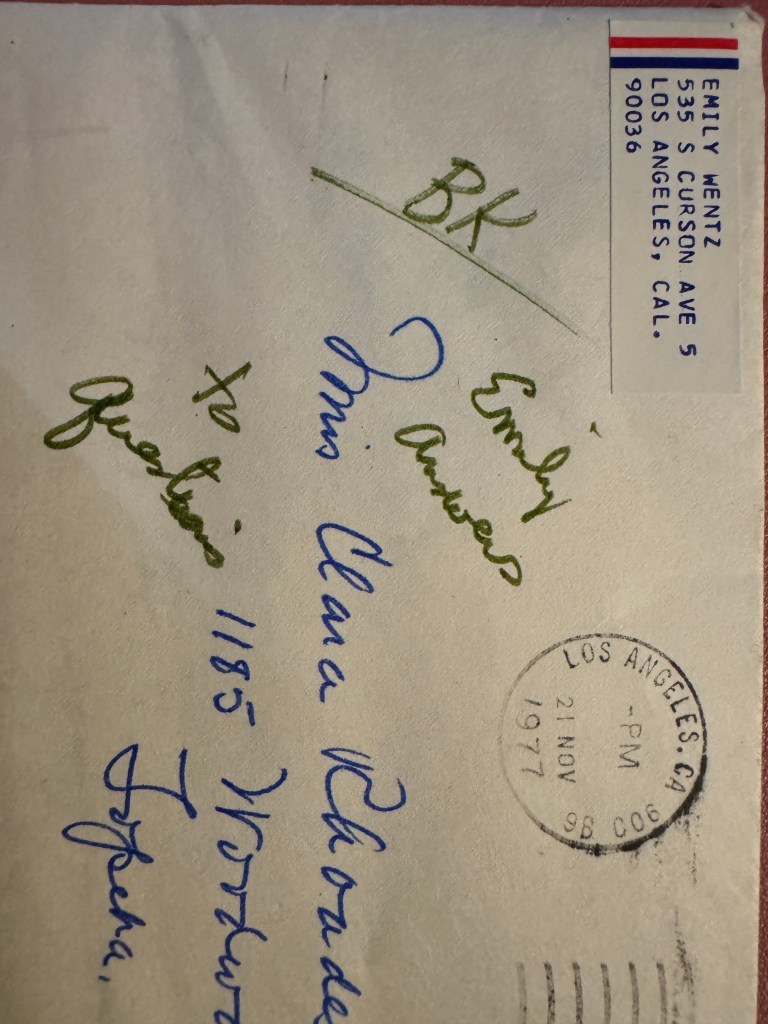 EMILY WENTZ
535 S CURSON AVE 5
LOS ANGELES, CAL.
90036
BK
Emily
answers
to
questions
LOS ANGELES, CA
-PM
21 NOV
1977
Miss Clara Rhoade
1185 Woodwa
Topeka,